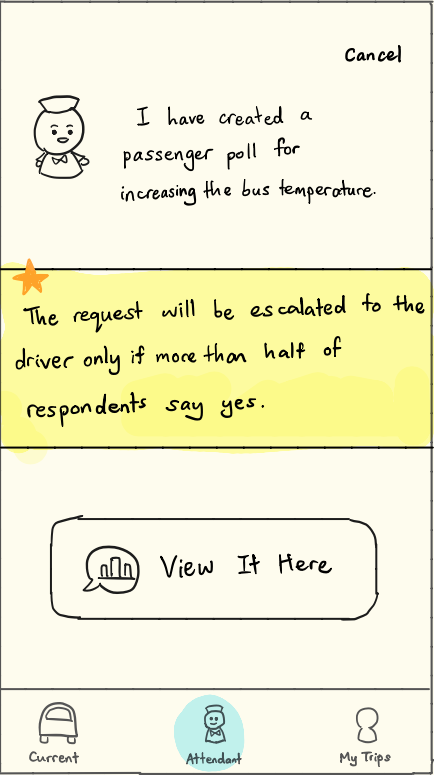 Cancel
I have created a
passenger poll for
increasing the bus temperature.
The request will be escalated to the
driver only if more than half of
respondents say yes.
View It Here
Current
Attendant
My Trips